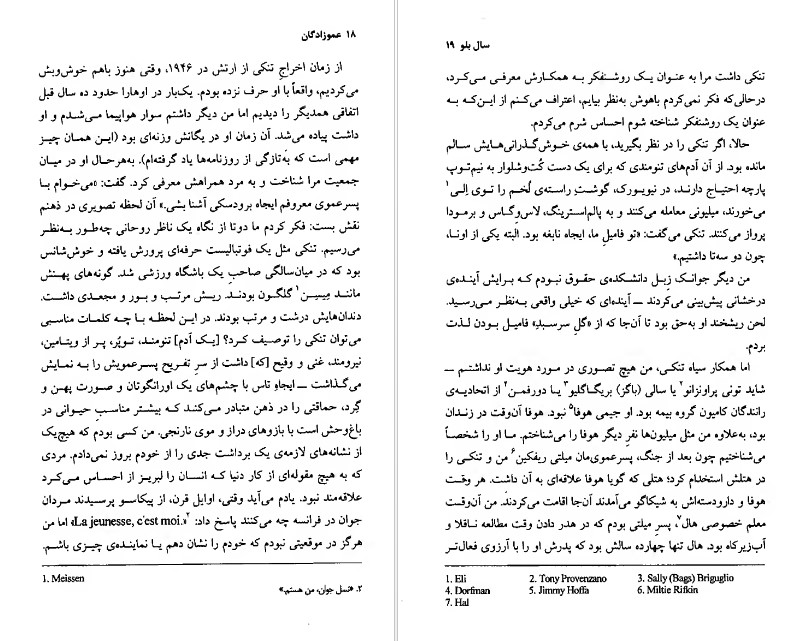 ۱۸ عموزادگان
از زمان اخراجِ تنکی از ارتش در ۱۹۴۶، وقتی هنوز باهم خوش‌وبش
می‌کردیم، واقعاً با او حرف نزده بودم. یک‌بار در اوهارا حدود ده سال قبل
اتفاقی همدیگر را دیدیم اما من دیگر داشتم سوار هواپیما می‌شدم و او
داشت پیاده می‌شد. آن زمان او در یگانش وزنه‌ای بود (این همان چیز
مهمی است که به‌تازگی از روزنامه‌ها یاد گرفته‌ام). به‌هرحال او در میان
جمعیت مرا شناخت و به مرد همراهش معرفی کرد. گفت: «می‌خوام با
پسرعموی معروفم ایجاه برودسکی آشنا بشی.» آن لحظه تصویری در ذهنم
نقش بست: فکر کردم ما دوتا از نگاه یک ناظر روحانی چه‌طور به‌نظر
می‌رسیم. تنکی مثل یک فوتبالیست حرفه‌ای پرورش یافته و خوش‌شانس
بود که در میان‌سالگی صاحبِ یک باشگاه ورزشی شد. گونه‌های پهنش
مانند مِیسِین۱ گلگون بودند. ریش مرتب و بور و مجعدی داشت.
دندان‌هایش درشت و مرتب بودند. در این لحظه با چه کلمات مناسبی
می‌توان تنکی را توصیف کرد؟ [یک آدم] تنومند، توپُر، پر از ویتامین،
نیرومند، غنی و وقیح [که] داشت از سرِ تفریح پسرعمویش را به نمایش
می‌گذاشت ــ ایجاهِ تاس با چشم‌های یک اورانگوتان و صورت پهن و
گِرد، حماقتی را در ذهن متبادر می‌کند که بیشتر مناسبِ حیوانی در
باغ‌وحش است با بازوهای دراز و موی نارنجی. من کسی بودم که هیچ‌یک
از نشانه‌های لازمه‌ی یک برداشت جدی را از خودم بروز نمی‌دادم. مردی
که به هیچ مقوله‌ای از کار دنیا که انسان را لبریز از احساس می‌کرد
علاقه‌مند نبود. یادم می‌آید وقتی، اوایل قرن، از پیکاسو پرسیدند مردان
جوان در فرانسه چه می‌کنند پاسخ داد: «La jeunesse, c'est moi.»۲ اما من
هرگز در موقعیتی نبودم که خودم را نشان دهم یا نماینده‌ی چیزی باشم.
1. Meissen
۲. «نسل جوان، من هستم.»
سال بلو ۱۹
تنکی داشت مرا به عنوان یک روشنفکر به همکارش معرفی می‌کرد،
درحالی‌که فکر نمی‌کردم باهوش به‌نظر بیایم، اعتراف می‌کنم از این‌که به
عنوان یک روشنفکر شناخته شوم احساس شرم می‌کردم.
حالا، اگر تنکی را در نظر بگیرید، با همه‌ی خوش‌گذرانی‌هایش سالم
مانده بود. از آن آدم‌های تنومندی که برای یک دست کُت‌وشلوار به نیم‌توپ
پارچه احتیاج دارند، در نیویورک، گوشتِ راسته‌ی لُخم را توی اِلی۱
می‌خورند، میلیونی معامله می‌کنند و به پالم‌اسپرینگ، لاس‌وِگاس و برمودا
پرواز می‌کنند. تنکی می‌گفت: «تو فامیلِ ما، ایجاه نابغه بود. البته یکی از اونا،
چون دو سه‌تا داشتیم.»
من دیگر جوانکِ زبلِ دانشکده‌ی حقوق نبودم که برایش آینده‌ی
درخشانی پیش‌بینی می‌کردند ــ آینده‌ای که خیلی واقعی به‌نظر می‌رسید.
لحن ریشخند او به‌حق بود تا آن‌جا که از «گلِ سرسبدِ» فامیل بودن لذت
بردم.
اما همکار سیاه تنکی، من هیچ تصوری در مورد هویت او نداشتم ــ
شاید تونی پراونزانو۲ یا سالی (باگز) بریگاگلیو۳ یا دورفمن۴ از اتحادیه‌ی
رانندگان کامیون گروه بیمه بود. او جیمی هوفا۵ نبود. هوفا آن‌وقت در زندان
بود، به‌علاوه من مثل میلیون‌ها نفرِ دیگر هوفا را می‌شناختم. ما او را شخصاً
می‌شناختیم چون بعد از جنگ، پسرعموی‌مان میلتی ریفکین۶ من و تنکی را
در هتلش استخدام کرد؛ هتلی که گویا هوفا علاقه‌ای به آن داشت. هر وقت
هوفا و دارودسته‌اش به شیکاگو می‌آمدند آن‌جا اقامت می‌کردند. من آن‌وقت
معلم خصوصی هال۷، پسرِ میلتی بودم که در هدر دادن وقت مطالعه ناقلا و
آب‌زیرکاه بود. هال تنها چهارده سالش بود که پدرش او را با آرزوی فعال‌تر
1. Eli 2. Tony Provenzano 3. Sally (Bags) Briguglio
4. Dorfman 5. Jimmy Hoffa 6. Miltie Rifkin
7. Hal